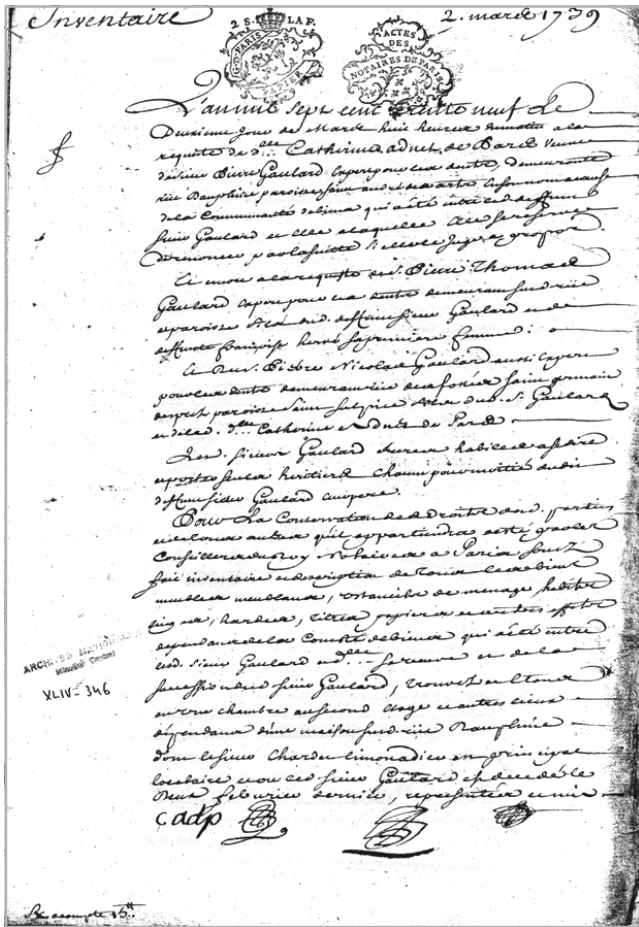 Inventaire
2. mars 1739
2 S. LA F.
G. D. PARIS
PAPIER
ACTES
DES
NOTAIRES DE PARIS
L'an mil sept cent trente neuf le
Deuxieme jour de Mars huit heures du matin a la
requête de d.lle Catherine adnet de Pards veuve
de sieur Pierre Gaulard expert pour les dents, demeurante
rüe Dauphine paroisse saint andré des arts en son nom a cause
de la Communauté de biens qui a été entre led deffunt
sieur Gaulard et elle a laquelle elle se reserve
de renoncer par la suitte si elle le juge a propos.
Et encore a la requête de s. Pierre Thomas
Gaulard expert pour les dents demeurant susd rüe
et paroisse fils dud. deffunt sieur Gaulard et de
deffunte françoise hervé sa premiere femme.
Et de s. Pierre Nicolas Gaulard aussi expert
pour les dents demeurant rüe des fossés saint germain
des prez paroisse saint sulpice fils dud. S. Gaulard
et de lad. d.lle Catherine adnet de Pards
Lesd. sieurs Gaulard freres habiles a se dire
et porter seuls heritiers chacun pour moitié dudit
deffunt sieur Gaulard leur pere.
Pour La Conservation des droits desd. parties
et de tous autres qu'il appartiendra
Conseillers du Roy Notaires a Paris
fait inventaire et description de tous les biens
meubles meublans, ustancilles de menage, habits
linges, hardes, titres papiers et autres effets
dependans de la Comté de biens qui a été entre
led. sieur Gaulard et d.lle sa veuve et de la
succession dud sieur Gaulard, trouvés et étans
en une chambre au second etage et autres lieux
dépendans d'une maison susd. rüe Dauphine
dont le sieur Chardin limonadier est principal
locataire et ou led sieur Gaulard est decedé le
Deux febvrier dernier, representés et mis
cadp
ARCHIVES NATIONALES
Minutier Central
XLIV-346